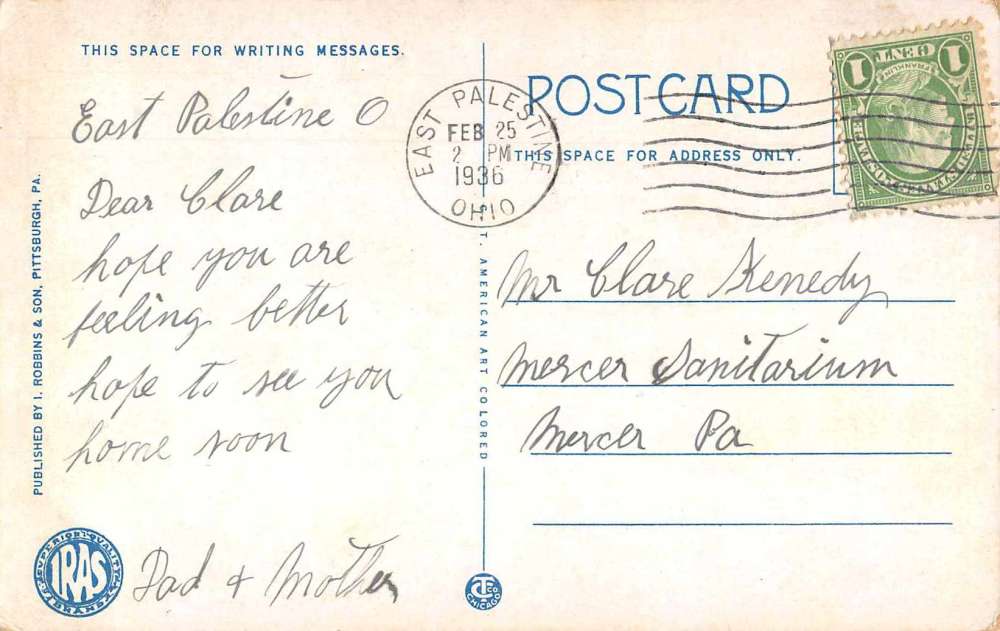 THIS SPACE FOR WRITING MESSAGES.
East Palestine O
Dear Clare
hope you are
feeling better
hope to see you
home soon
Dad + Mother
PUBLISHED BY I. ROBBINS & SON, PITTSBURGH, PA.
SUPERIOR QUALITY
IRAS
BRAND
EAST PALESTINE
FEB 25
2 PM
1936
OHIO
POSTCARD
THIS SPACE FOR ADDRESS ONLY.
T. AMERICAN ART COLORED
Mr Clare Kenedy
Mercer Sanitarium
Mercer Pa
CT CO
CHICAGO
1 CENT 1
FRANKLIN